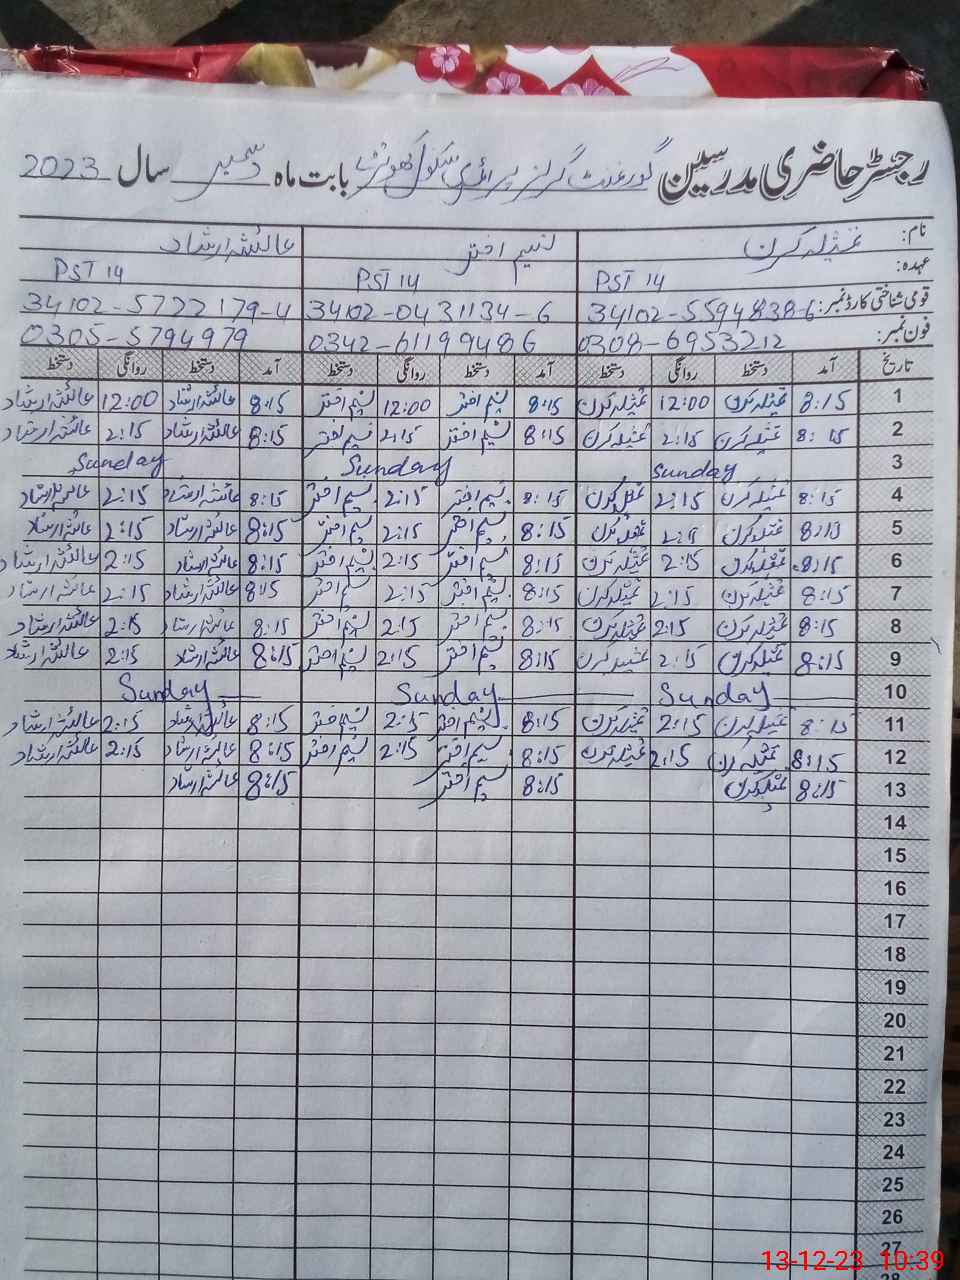 رجسٹر حاضری مدرسین گورنمنٹ گرلز پرائمری سکول بابت ماہ دسمبر سال 2023
نام: عقیلہ کرن نسیم اختر عائشہ ارشاد
عہدہ: PST 14 PST 14 PST 14
قومی شناختی کارڈ نمبر: 34102-5594838-6 34102-0431134-6 34102-5722179-4
فون نمبر: 0308-6953212 0342-61199486 0305-5794979
تاریخ آمد دستخط روانگی دستخط آمد دستخط روانگی دستخط آمد دستخط روانگی دستخط
1 8:15 عقیلہ کرن 12:00 عقیلہ کرن 8:15 نسیم اختر 12:00 نسیم اختر 8:15 عائشہ ارشاد 12:00 عائشہ ارشاد
2 8:15 عقیلہ کرن 2:15 عقیلہ کرن 8:15 نسیم اختر 2:15 نسیم اختر 8:15 عائشہ ارشاد 2:15 عائشہ ارشاد
3 Sunday Sunday Sunday
4 8:15 عقیلہ کرن 2:15 عقیلہ کرن 8:15 نسیم اختر 2:15 نسیم اختر 8:15 عائشہ ارشاد 2:15 عائشہ ارشاد
5 8:15 عقیلہ کرن 2:15 عقیلہ کرن 8:15 نسیم اختر 2:15 نسیم اختر 8:15 عائشہ ارشاد 2:15 عائشہ ارشاد
6 8:15 عقیلہ کرن 2:15 عقیلہ کرن 8:15 نسیم اختر 2:15 نسیم اختر 8:15 عائشہ ارشاد 2:15 عائشہ ارشاد
7 8:15 عقیلہ کرن 2:15 عقیلہ کرن 8:15 نسیم اختر 2:15 نسیم اختر 8:15 عائشہ ارشاد 2:15 عائشہ ارشاد
8 8:15 عقیلہ کرن 2:15 عقیلہ کرن 8:15 نسیم اختر 2:15 نسیم اختر 8:15 عائشہ ارشاد 2:15 عائشہ ارشاد
9 8:15 عقیلہ کرن 2:15 عقیلہ کرن 8:15 نسیم اختر 2:15 نسیم اختر 8:15 عائشہ ارشاد 2:15 عائشہ ارشاد
10 Sunday Sunday Sunday
11 8:15 عقیلہ کرن 2:15 عقیلہ کرن 8:15 نسیم اختر 2:15 نسیم اختر 8:15 عائشہ ارشاد 2:15 عائشہ ارشاد
12 8:15 عقیلہ کرن 2:15 عقیلہ کرن 8:15 نسیم اختر 2:15 نسیم اختر 8:15 عائشہ ارشاد 2:15 عائشہ ارشاد
13 8:15 عقیلہ کرن 8:15 نسیم اختر 8:15 عائشہ ارشاد
14
15
16
17
18
19
20
21
22
23
24
25
26
27
28
13-12-23 10:39